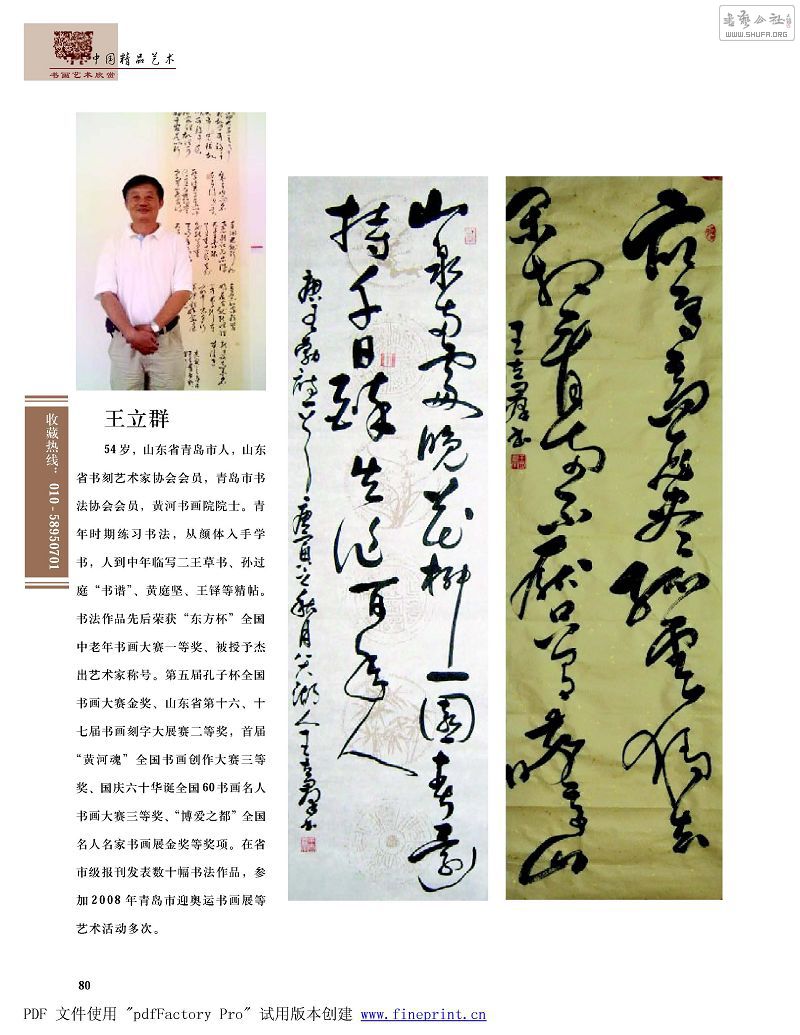 书艺公社
WWW.SHUFA.ORG
中国精品艺术
书画艺术欣赏
收藏热线：010-58950701
王立群
54岁，山东省青岛市人，山东
省书刻艺术家协会会员，青岛市书
法协会会员，黄河书画院院士。青
年时期练习书法，从颜体入手学
书，人到中年临写二王草书、孙过
庭“书谱”、黄庭坚、王铎等精帖。
书法作品先后荣获“东方杯”全国
中老年书画大赛一等奖、被授予杰
出艺术家称号。第五届孔子杯全国
书画大赛金奖、山东省第十六、十
七届书画刻字大展赛二等奖，首届
“黄河魂”全国书画创作大赛三等
奖、国庆六十华诞全国60书画名人
书画大赛三等奖、“博爱之都”全国
名人名家书画展金奖等奖项。在省
市级报刊发表数十幅书法作品，参
加2008年青岛市迎奥运书画展等
艺术活动多次。
山泉两处晚花柳一园春还
持千日醉共作百年人
唐王勃诗一首庚寅之秋月八大湖人王立群书
众鸟高飞尽孤云独去
闲相看两不厌只有敬亭山
王立群书
80
PDF 文件使用 "pdfFactory Pro" 试用版本创建 www.fineprint.cn